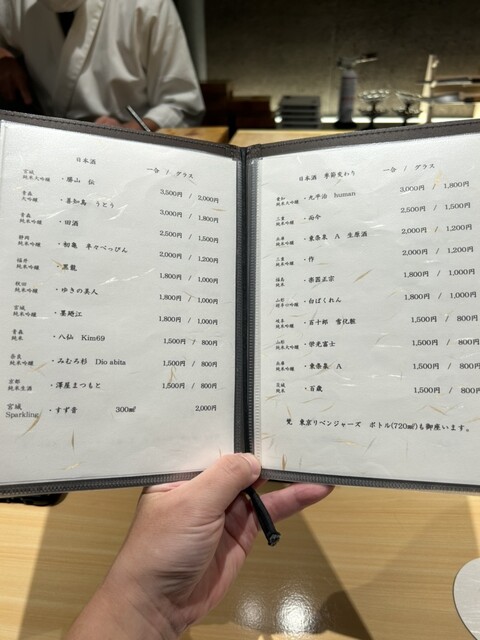 日本酒
一合 / グラス
宮城 純米大吟醸 ・勝山 伝 3,500円 / 2,000円
青森 大吟醸 ・善知鳥 うとう 3,000円 / 1,800円
青森 純米吟醸 ・田酒 2,500円 / 1,500円
静岡 純米吟醸 ・初亀 早々べっぴん 2,000円 / 1,200円
福井 純米吟醸 ・黒龍 1,800円 / 1,000円
秋田 純米吟醸 ・ゆきの美人 1,800円 / 1,000円
宮城 純米吟醸 ・墨廼江 1,800円 / 1,000円
青森 純米 ・八仙 Kim69 1,500円 / 800円
奈良 純米吟醸 ・みむろ杉 Dio abita 1,500円 / 800円
京都 純米生酒 ・澤屋まつもと 1,500円 / 800円
宮城 Sparkling ・すず音 300㎖ 2,000円
日本酒 季節変わり
一合 / グラス
愛知 純米大吟醸 ・九平治 human 3,000円 / 1,800円
三重 純米吟醸 ・而今 2,500円 / 1,500円
兵庫 純米吟醸 ・東条泉 A 生原酒 2,000円 / 1,200円
三重 純米吟醸 ・作 2,000円 / 1,200円
福島 純米 ・楽器正宗 1,800円 / 1,000円
山形 ・白ばくれん 1,800円 / 1,000円
岐阜 純米吟醸 ・百十郎 雪化粧 1,500円 / 800円
山形 純米大吟醸 ・栄光冨士 1,500円 / 800円
兵庫 純米吟醸 ・東条泉 A 1,500円 / 800円
茨城 純米 ・百歳 1,500円 / 800円
梵 東京リベンジャーズ ボトル(720㎖)も御座います。